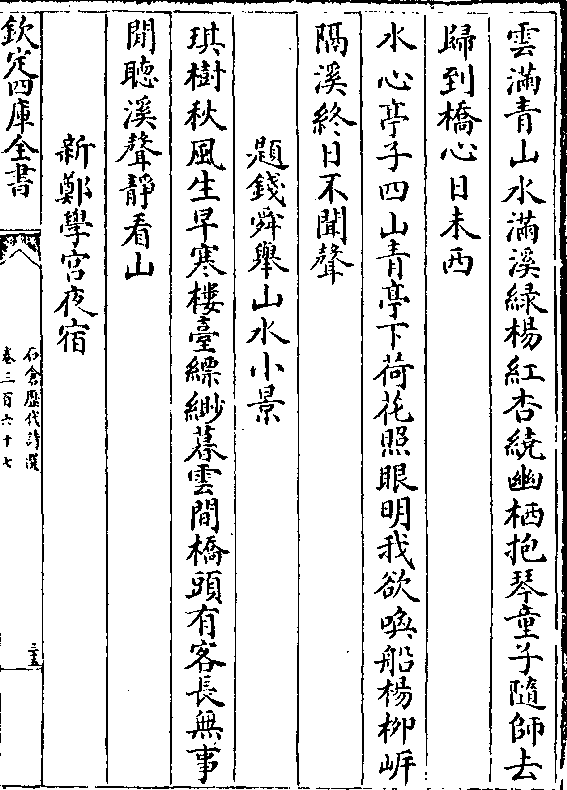 雲滿青山水滿溪緑楊紅杏繞幽栖抱琴童子隨師去
歸到橋心日未西
水心亭子四山青亭下荷花照眼明我欲喚船楊柳㟁
隔溪終日不聞聲
題錢舜舉山水小景
琪樹秋風生早寒樓臺縹緲暮雲間橋頭有客長無事
閒聽溪聲靜看山
新鄭學宮夜宿
欽定四庫全書
石倉歷代詩選
卷三百六十七
三五